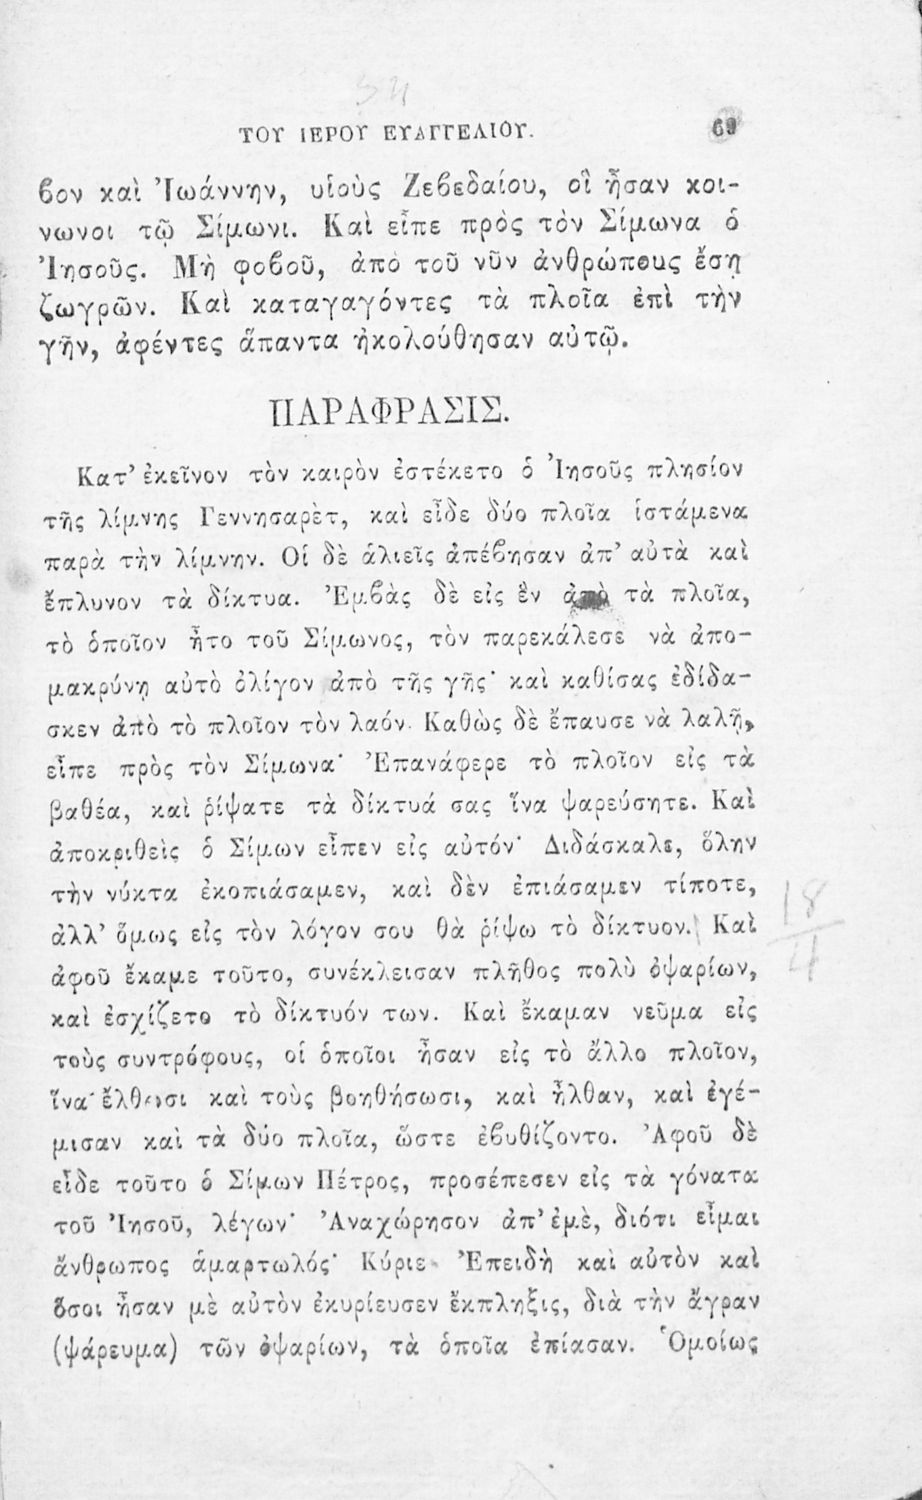 34
ΤΟΥ ΙΕΡΟΥ ΕΥΑΓΓΕΛΙΟΥ. 69
βον καὶ Ἰωάννην, υἱοὺς Ζεβεδαίου, οἳ ἦσαν κοι-
νωνοι τῷ Σίμωνι. Καὶ εἶπε πρὸς τὸν Σίμωνα ὁ
Ἰησοῦς. Μὴ φοβοῦ, ἀπὸ τοῦ νῦν ἀνθρώπους ἔσῃ
ζωγρῶν. Καὶ καταγαγόντες τὰ πλοῖα ἐπὶ τὴν
γῆν, ἀφέντες ἅπαντα ἠκολούθησαν αὐτῷ.
ΠΑΡΑΦΡΑΣΙΣ.
Κατ’ ἐκεῖνον τὸν καιρὸν ἐστέκετο ὁ Ἰησοῦς πλησίον
τῆς λίμνης Γεννησαρὲτ, καὶ εἶδε δύο πλοῖα ἱστάμενα
παρὰ τὴν λίμνην. Οἱ δὲ ἁλιεῖς ἀπέβησαν ἀπ’ αὐτὰ καὶ
ἔπλυνον τὰ δίκτυα. Ἐμβὰς δὲ εἰς ἓν ἀπὸ τὰ πλοῖα,
τὸ ὁποῖον ἦτο τοῦ Σίμωνος, τὸν παρεκάλεσε νὰ ἀπο-
μακρύνῃ αὐτὸ ὀλίγον ἀπὸ τῆς γῆς· καὶ καθίσας ἐδίδα-
σκεν ἀπὸ τὸ πλοῖον τὸν λαόν. Καθὼς δὲ ἔπαυσε νὰ λαλῇ,
εἶπε πρὸς τὸν Σίμωνα· Ἐπανάφερε τὸ πλοῖον εἰς τὰ
βαθέα, καὶ ῥίψατε τὰ δίκτυά σας ἵνα ψαρεύσητε. Καὶ
ἀποκριθεὶς ὁ Σίμων εἶπεν εἰς αὐτόν· Διδάσκαλε, ὅλην
τὴν νύκτα ἐκοπιάσαμεν, καὶ δὲν ἐπιάσαμεν τίποτε,
ἀλλ’ ὅμως εἰς τὸν λόγον σου θὰ ῥίψω τὸ δίκτυον. Καὶ
ἀφοῦ ἔκαμε τοῦτο, συνέκλεισαν πλῆθος πολὺ ὀψαρίων,
καὶ ἐσχίζετο τὸ δίκτυόν των. Καὶ ἔκαμαν νεῦμα εἰς
τοὺς συντρόφους, οἱ ὁποῖοι ἦσαν εἰς τὸ ἄλλο πλοῖον,
ἵνα ἔλθωσι καὶ τοὺς βοηθήσωσι, καὶ ἦλθαν, καὶ ἐγέ-
μισαν καὶ τὰ δύο πλοῖα, ὥστε ἐβυθίζοντο. Ἀφοῦ δὲ
εἶδε τοῦτο ὁ Σίμων Πέτρος, προσέπεσεν εἰς τὰ γόνατα
τοῦ Ἰησοῦ, λέγων· Ἀναχώρησον ἀπ’ ἐμὲ, διότι εἶμαι
ἄνθρωπος ἁμαρτωλός· Κύριε· Ἐπειδὴ καὶ αὐτὸν καὶ
ὅσοι ἦσαν μὲ αὐτὸν ἐκυρίευσεν ἔκπληξις, διὰ τὴν ἄγραν
(ψάρευμα) τῶν ὀψαρίων, τὰ ὁποῖα ἐπίασαν. Ὁμοίως
18
4